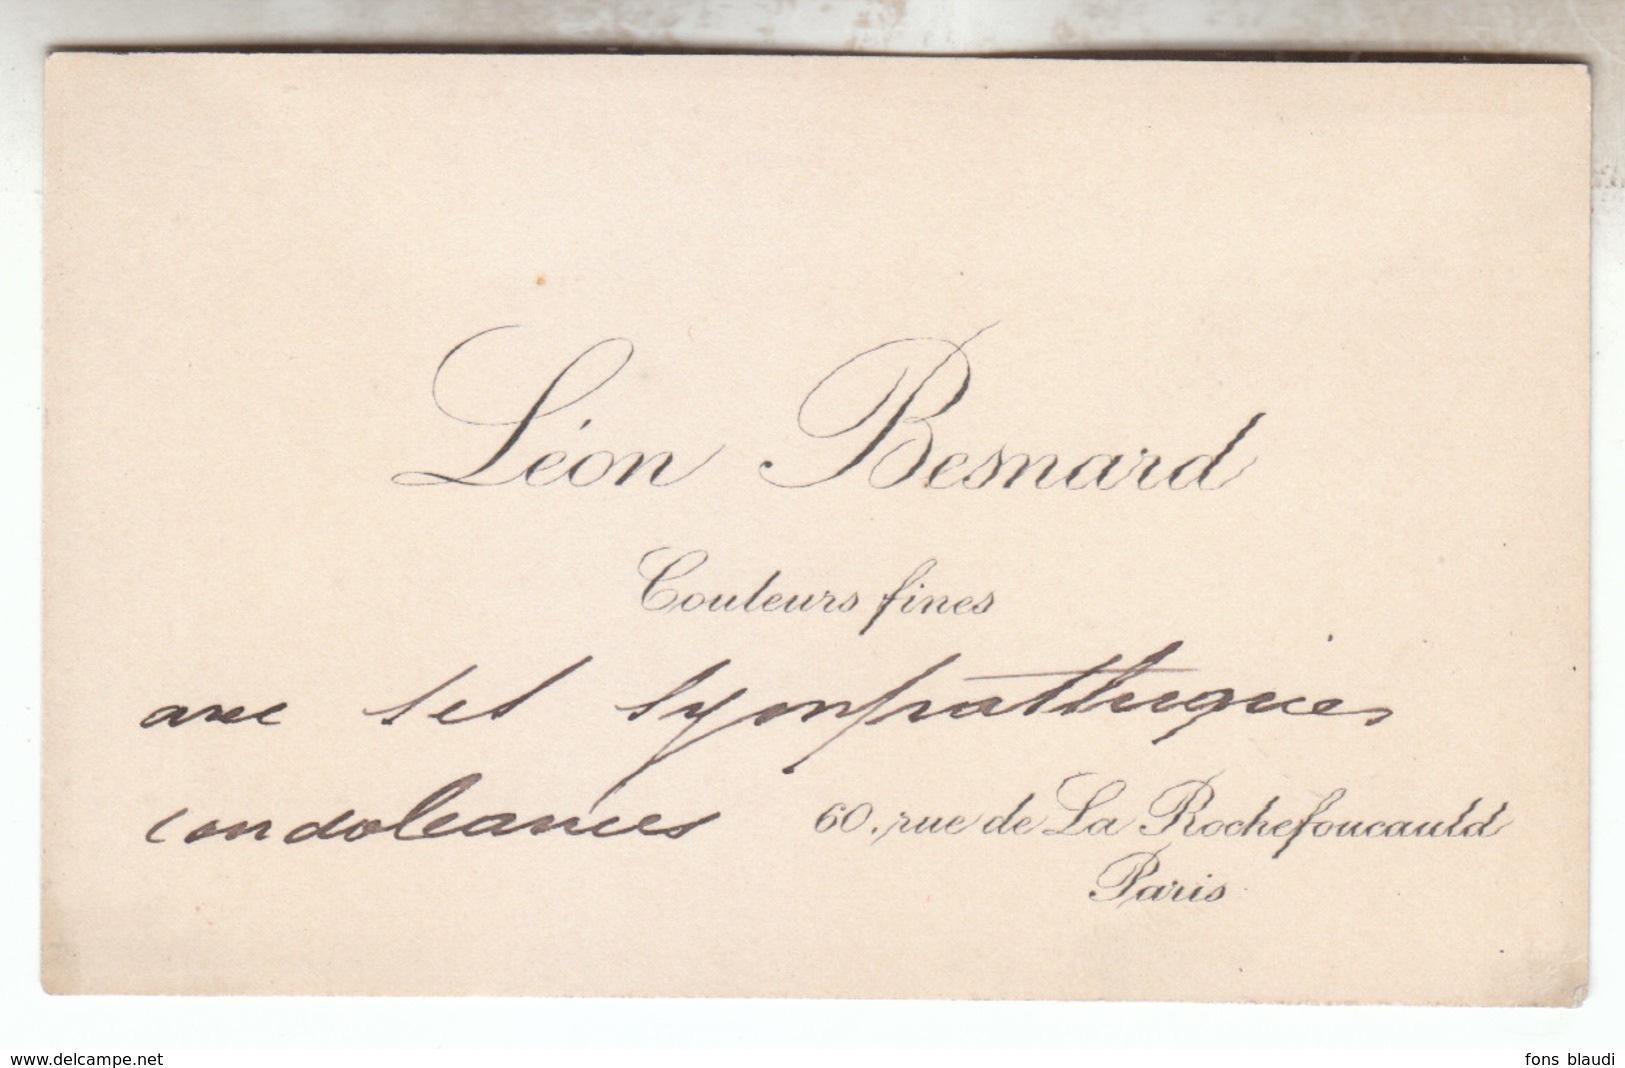 Léon Besnard
Couleurs fines
avec ses sympathiques
condoleances
60, rue de La Rochefoucauld
Paris
www.delcampe.net
fons blaudi